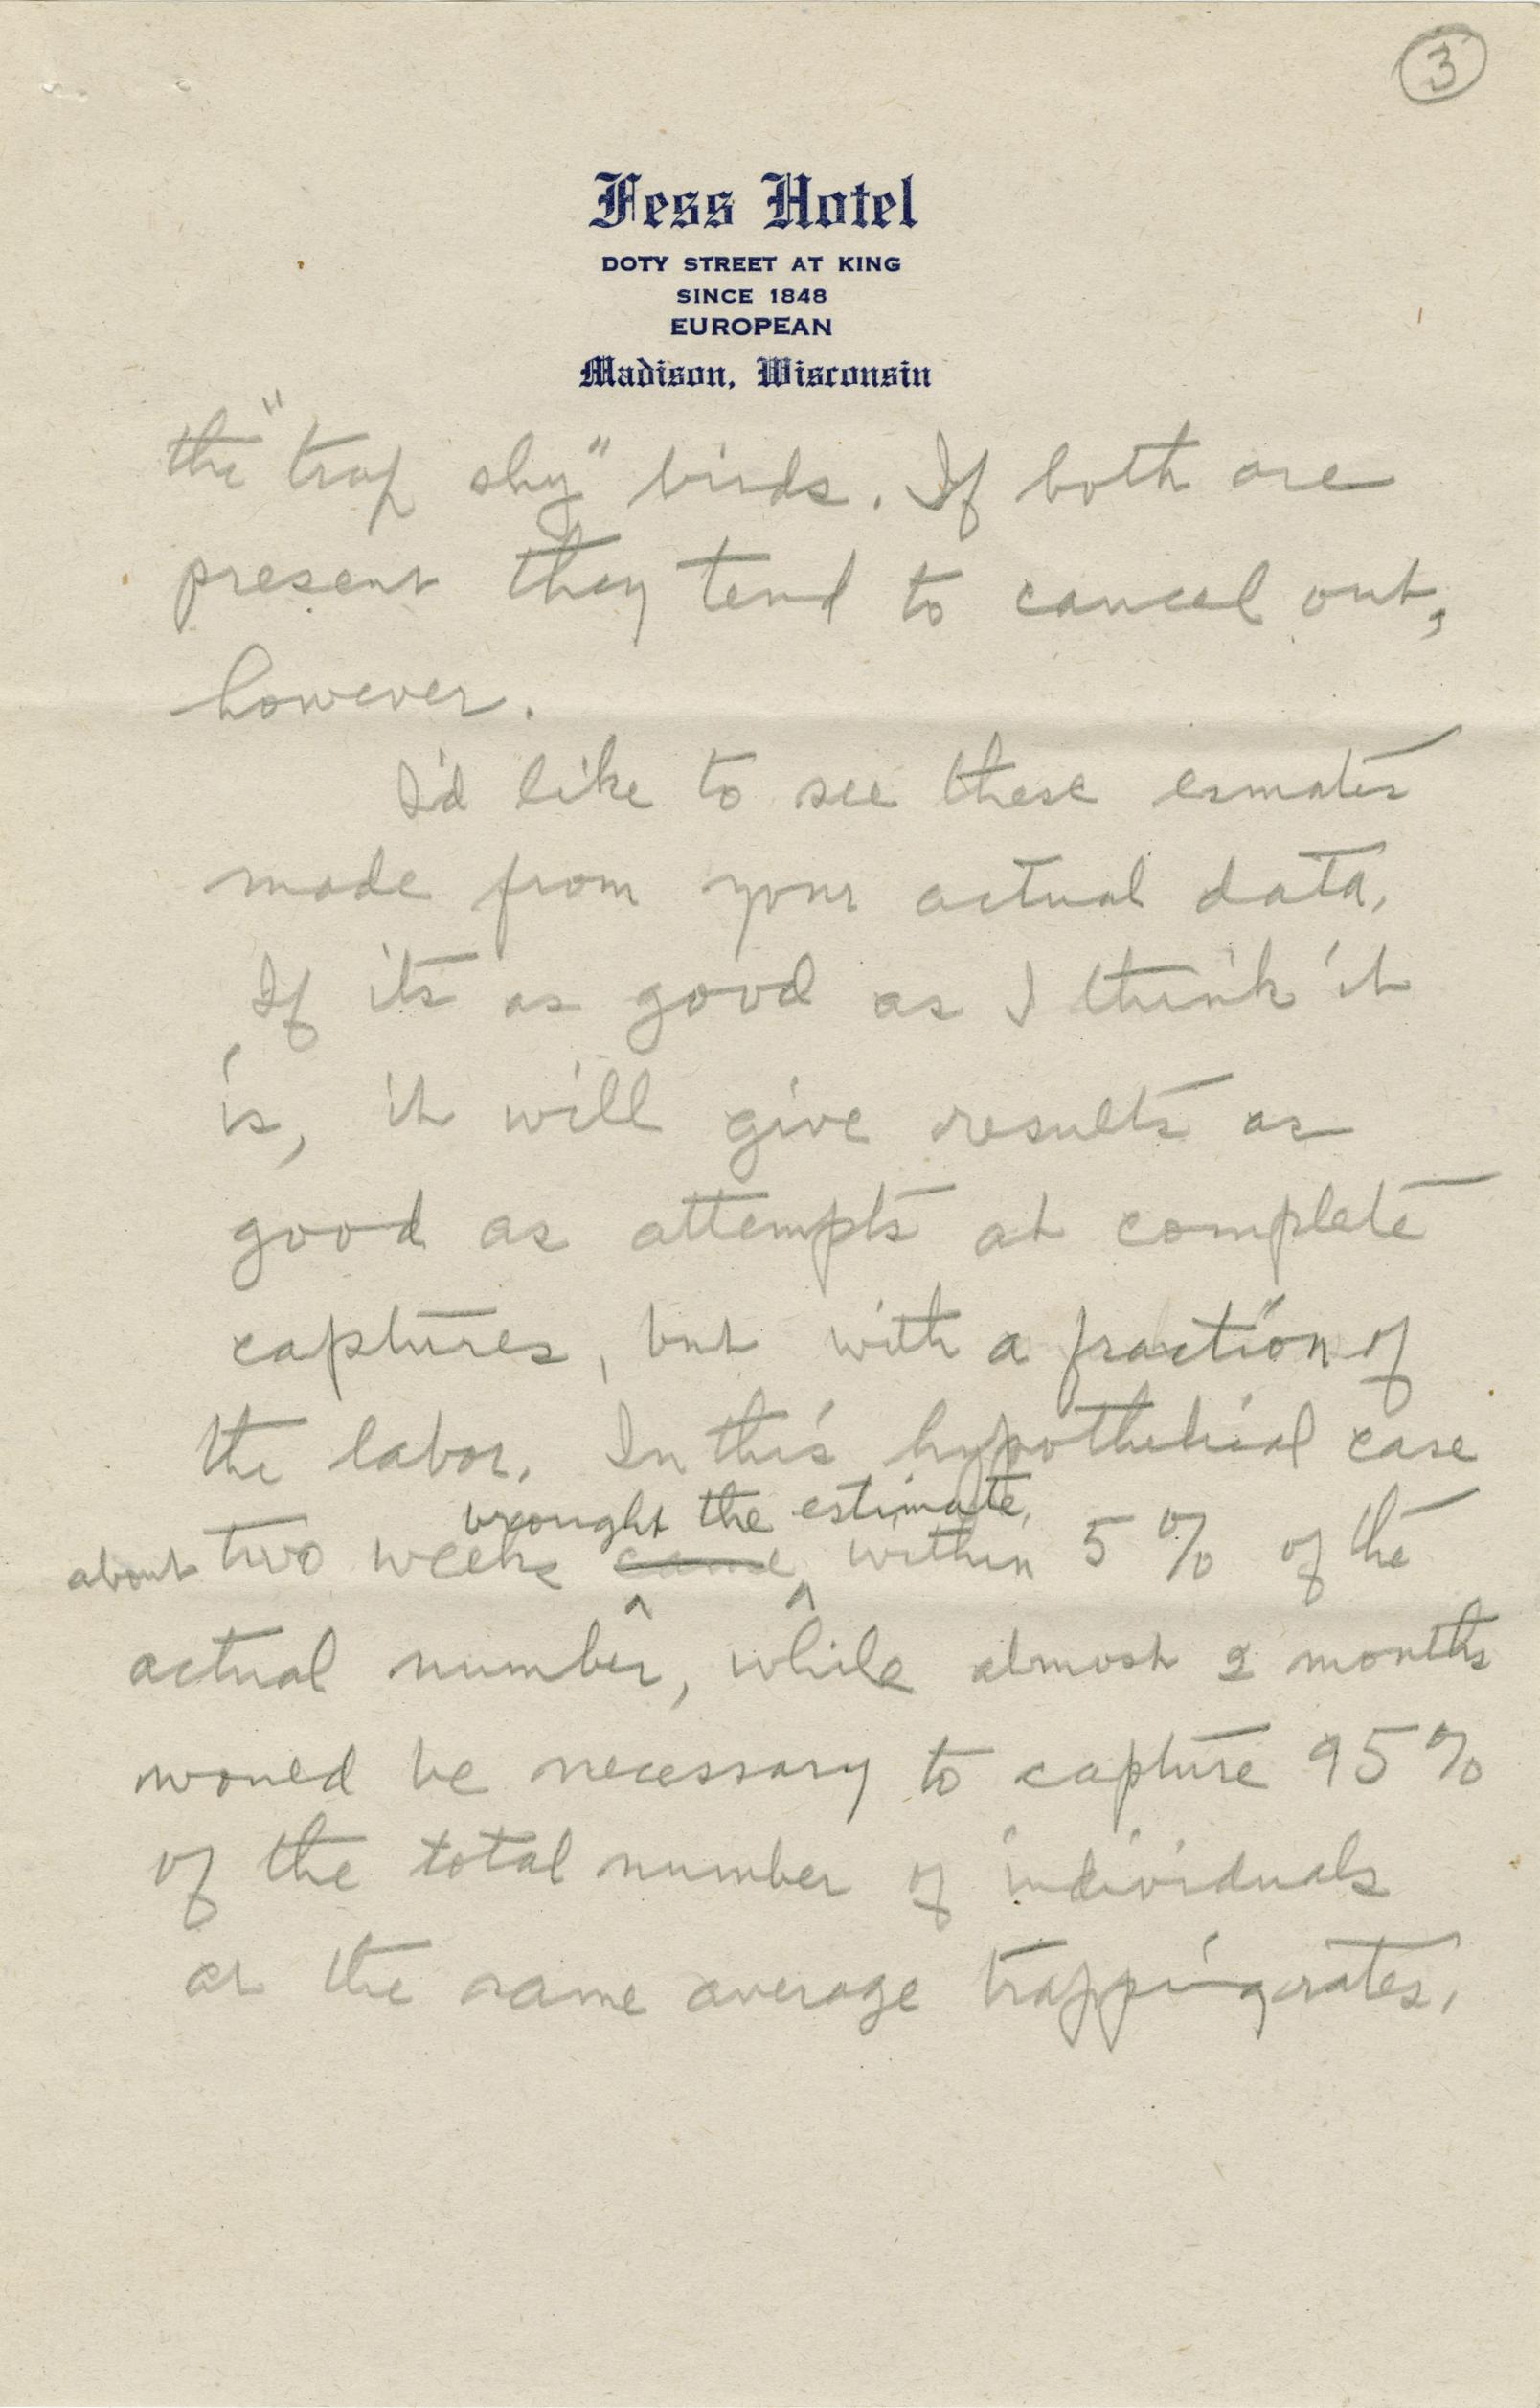 3
Fess Hotel
DOTY STREET AT KING
SINCE 1848
EUROPEAN
Madison, Wisconsin
the "trap shy" birds. If both are
present they tend to cancel out,
however.
I'd like to see these esmates
made from your actual data.
If its as good as I think it
is, it will give results as
good as attempts at complete
captures, but with a fraction of
the labor. In this hypothetical case
brought the estimate
about two weeks came within 5% of the
actual number, while almost 2 months
would be necessary to capture 95%
of the total number of individuals
at the same average trapping rates.